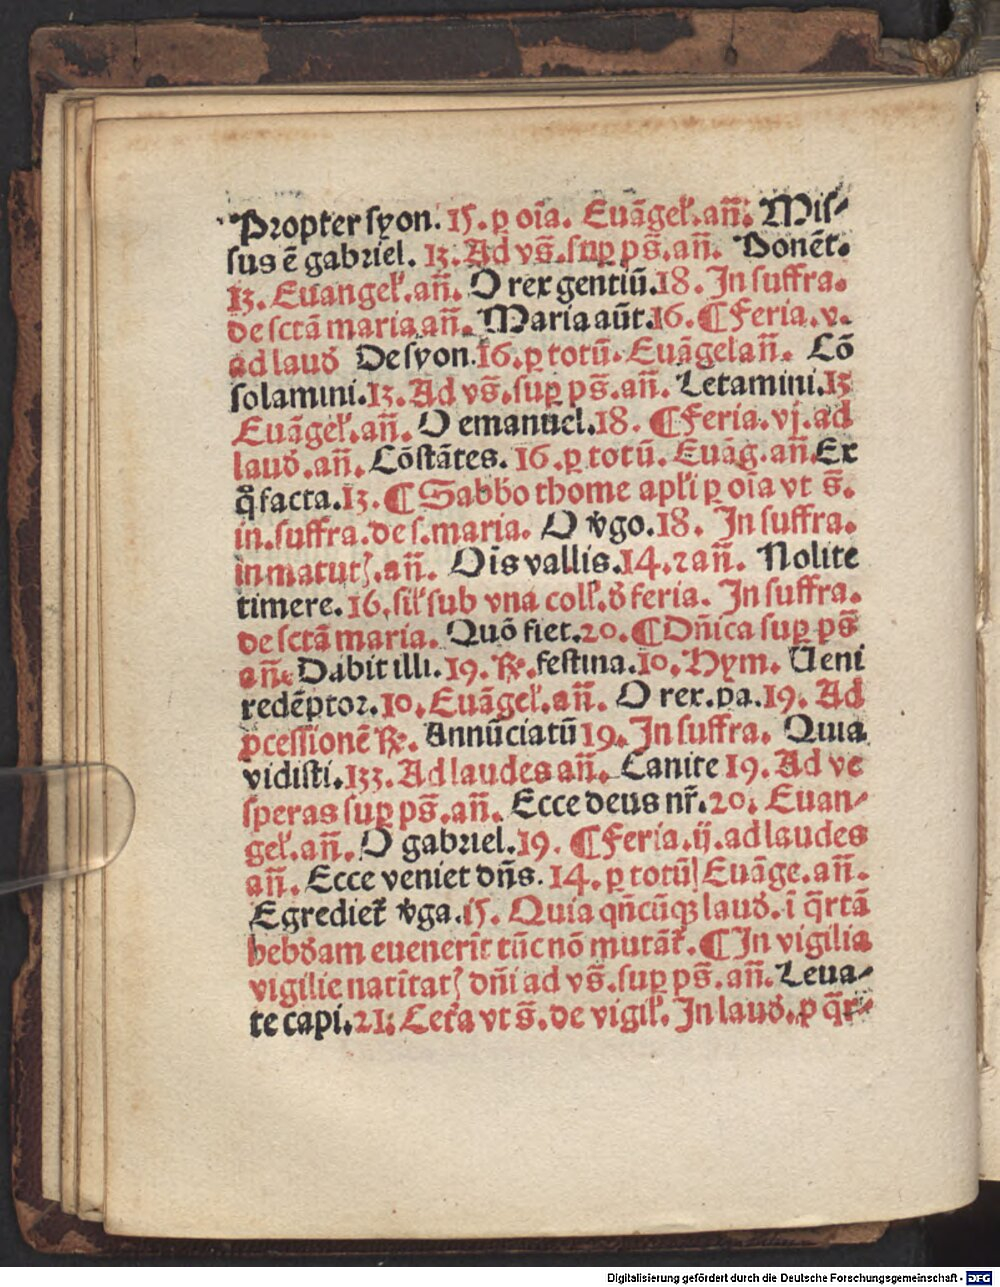 Propter syon. 15. ꝑ oīa. Euāgel̛. añ. Mis⸗
sus ē gabriel. 13. Ad vs̄. suꝑ ps̄. añ. Donēt.
13. Euangel̛. añ. O rex gentiū. 18. In suffra.
de sctā maria añ. Maria aūt. 16. ¶ Feria. v.
ad laud̛ De syon. 16. ꝑ totū. Euāgel añ. Cō
solamini. 13. Ad vs̄. suꝑ ps̄. añ. Letamini. 13
Euāgel̛. añ. O emanuel. 18. ¶ Feria. vj. ad
laud̛. añ. Cōstātes. 16. ꝑ totū. Euāg. añ. Ex
q̊ facta. 13. ¶ Sabbo thome apl̛i ꝑ oīa vt s̄.
in. suffra. de s. maria. O v̛go. 18. In suffra.
in matutꝭ. añ. Oīs vallis. 14. ⁊ añ. Nolite
timere. 16. sil̛ sub vna coll̛. d̛ feria. In suffra.
de sctā maria. Quō fiet. 20. ¶ Dñica suꝑ ps̄
añ. Dabit illi. 19. ℟. festina. 10. Hym. Ueni
redēptoꝛ. 10. Euāgel̛. añ. O rex. pa. 19. Ad
ꝓcessionē ℟. Annūciatū 19. In suffra. Quia
vidisti. 133. Ad laudes añ. Canite 19. Ad ve
speras suꝑ ps̄. añ. Ecce deus nr̄. 20. Euan⸗
gel̛. añ. O gabriel. 19. ¶ Feria. ij. ad laudes
añ. Ecce veniet dñs. 14. ꝑ totū| Euāge. añ.
Egrediet̛ v̛ga. 15. Quia qn̄cūqꝫ laud̛. ī q̄rtā
hebd̛am euenerit tūc nō mutāt̛. ¶ In vigilia
vigilie natītatꝭ dn̄i ad vs̄. suꝑ ps̄. añ. Leua⸗
te capi. 21. Cet̛a vt s̄. de vigil̛. In laud̛. ꝑ q̄r⸗
Digitalisierung gefördert durch die Deutsche Forschungsgemeinschaft - DFG